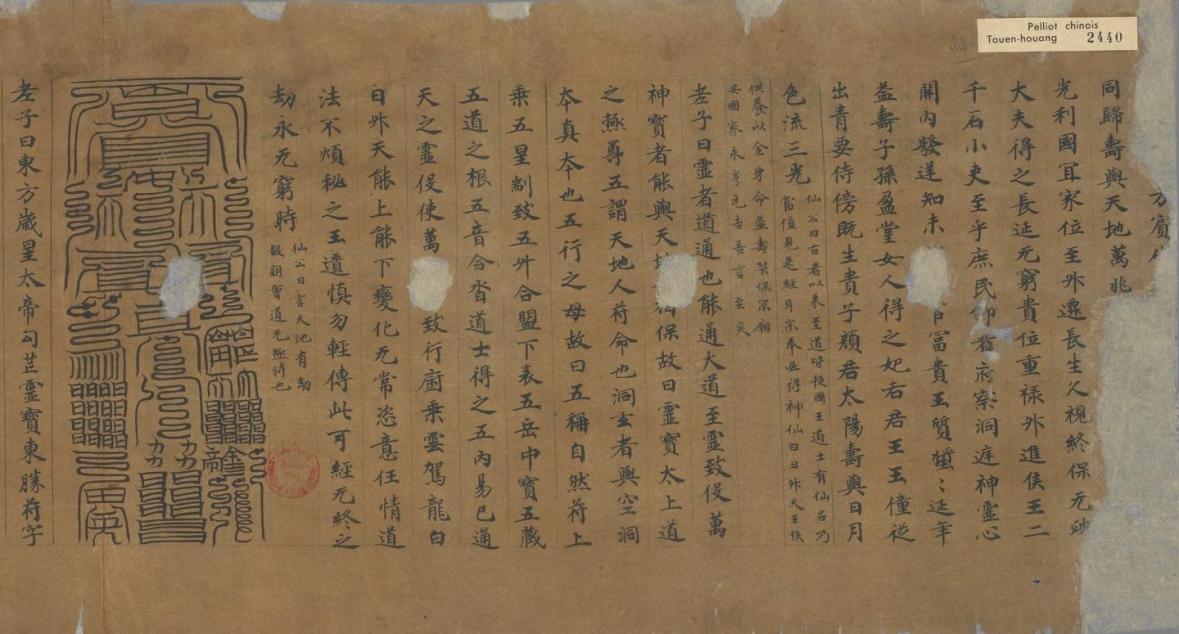 Pelliot chinois
Touen-houang 2440
同歸壽與天地萬兆
光利國冝家位至升遷長生久視終保元
大夫得之長延无窮貴位重禄升進侯王二
千石小吏至乎庶民府寮洞遅神靈心
開內發逆知未官冨貴玉質熒〻延年
益壽子孫盈堂女人得之妃右君王玉僮從
出青要侍傍既生貴子願君太陽壽與日月
色流三光
仙公曰古者以来至道皆授國王道士有仙名乃
當值見是經耳宗奉此得神仙白日升天王侯
供養以全身命益壽筭保宗廟
安國家永享元吉吾言至矣
老子曰靈者道通也能通大道至靈致役萬
神寶者能與天地相保故曰靈寶太上道
之極尊五謂天地人苻命也洞玄者與空洞
本真本也五行之母故曰五稱自然苻上
乘五星制致五升合盟下表五岳中寶五藏
五道之根五音合沓道士得之五內易已通
天之靈役使萬致行廚乘雲駕龍白
日升天能上能下變化无常恣意任情道
法不煩秘之玉遺慎勿輕傳此可經无終之
劫永无窮時
仙公曰言天地有劫
數期會道无極時也
老子曰東方歲星太帝勾芒靈寶東勝苻字